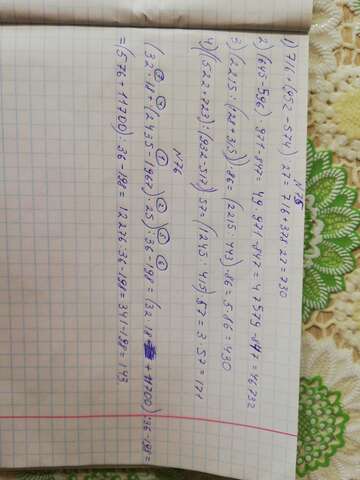 N75
1) 716+(952-574):27=716+378:27=730
2) (645-596)·971-847=49·971-847=47579-847=46732
3) (2215:(128+315))·86=(2215:443)·86=5·86=430
4) ((522+723):(932-517))·57=(1245:415)·57=3·57=171
N76
② ④ ① ③ ⑤ ⑥
(32·18+(2435-1967)·25):36-198=(32·18+11700):36-198=
=(576+11700):36-198=12276:36-198=341-198=143